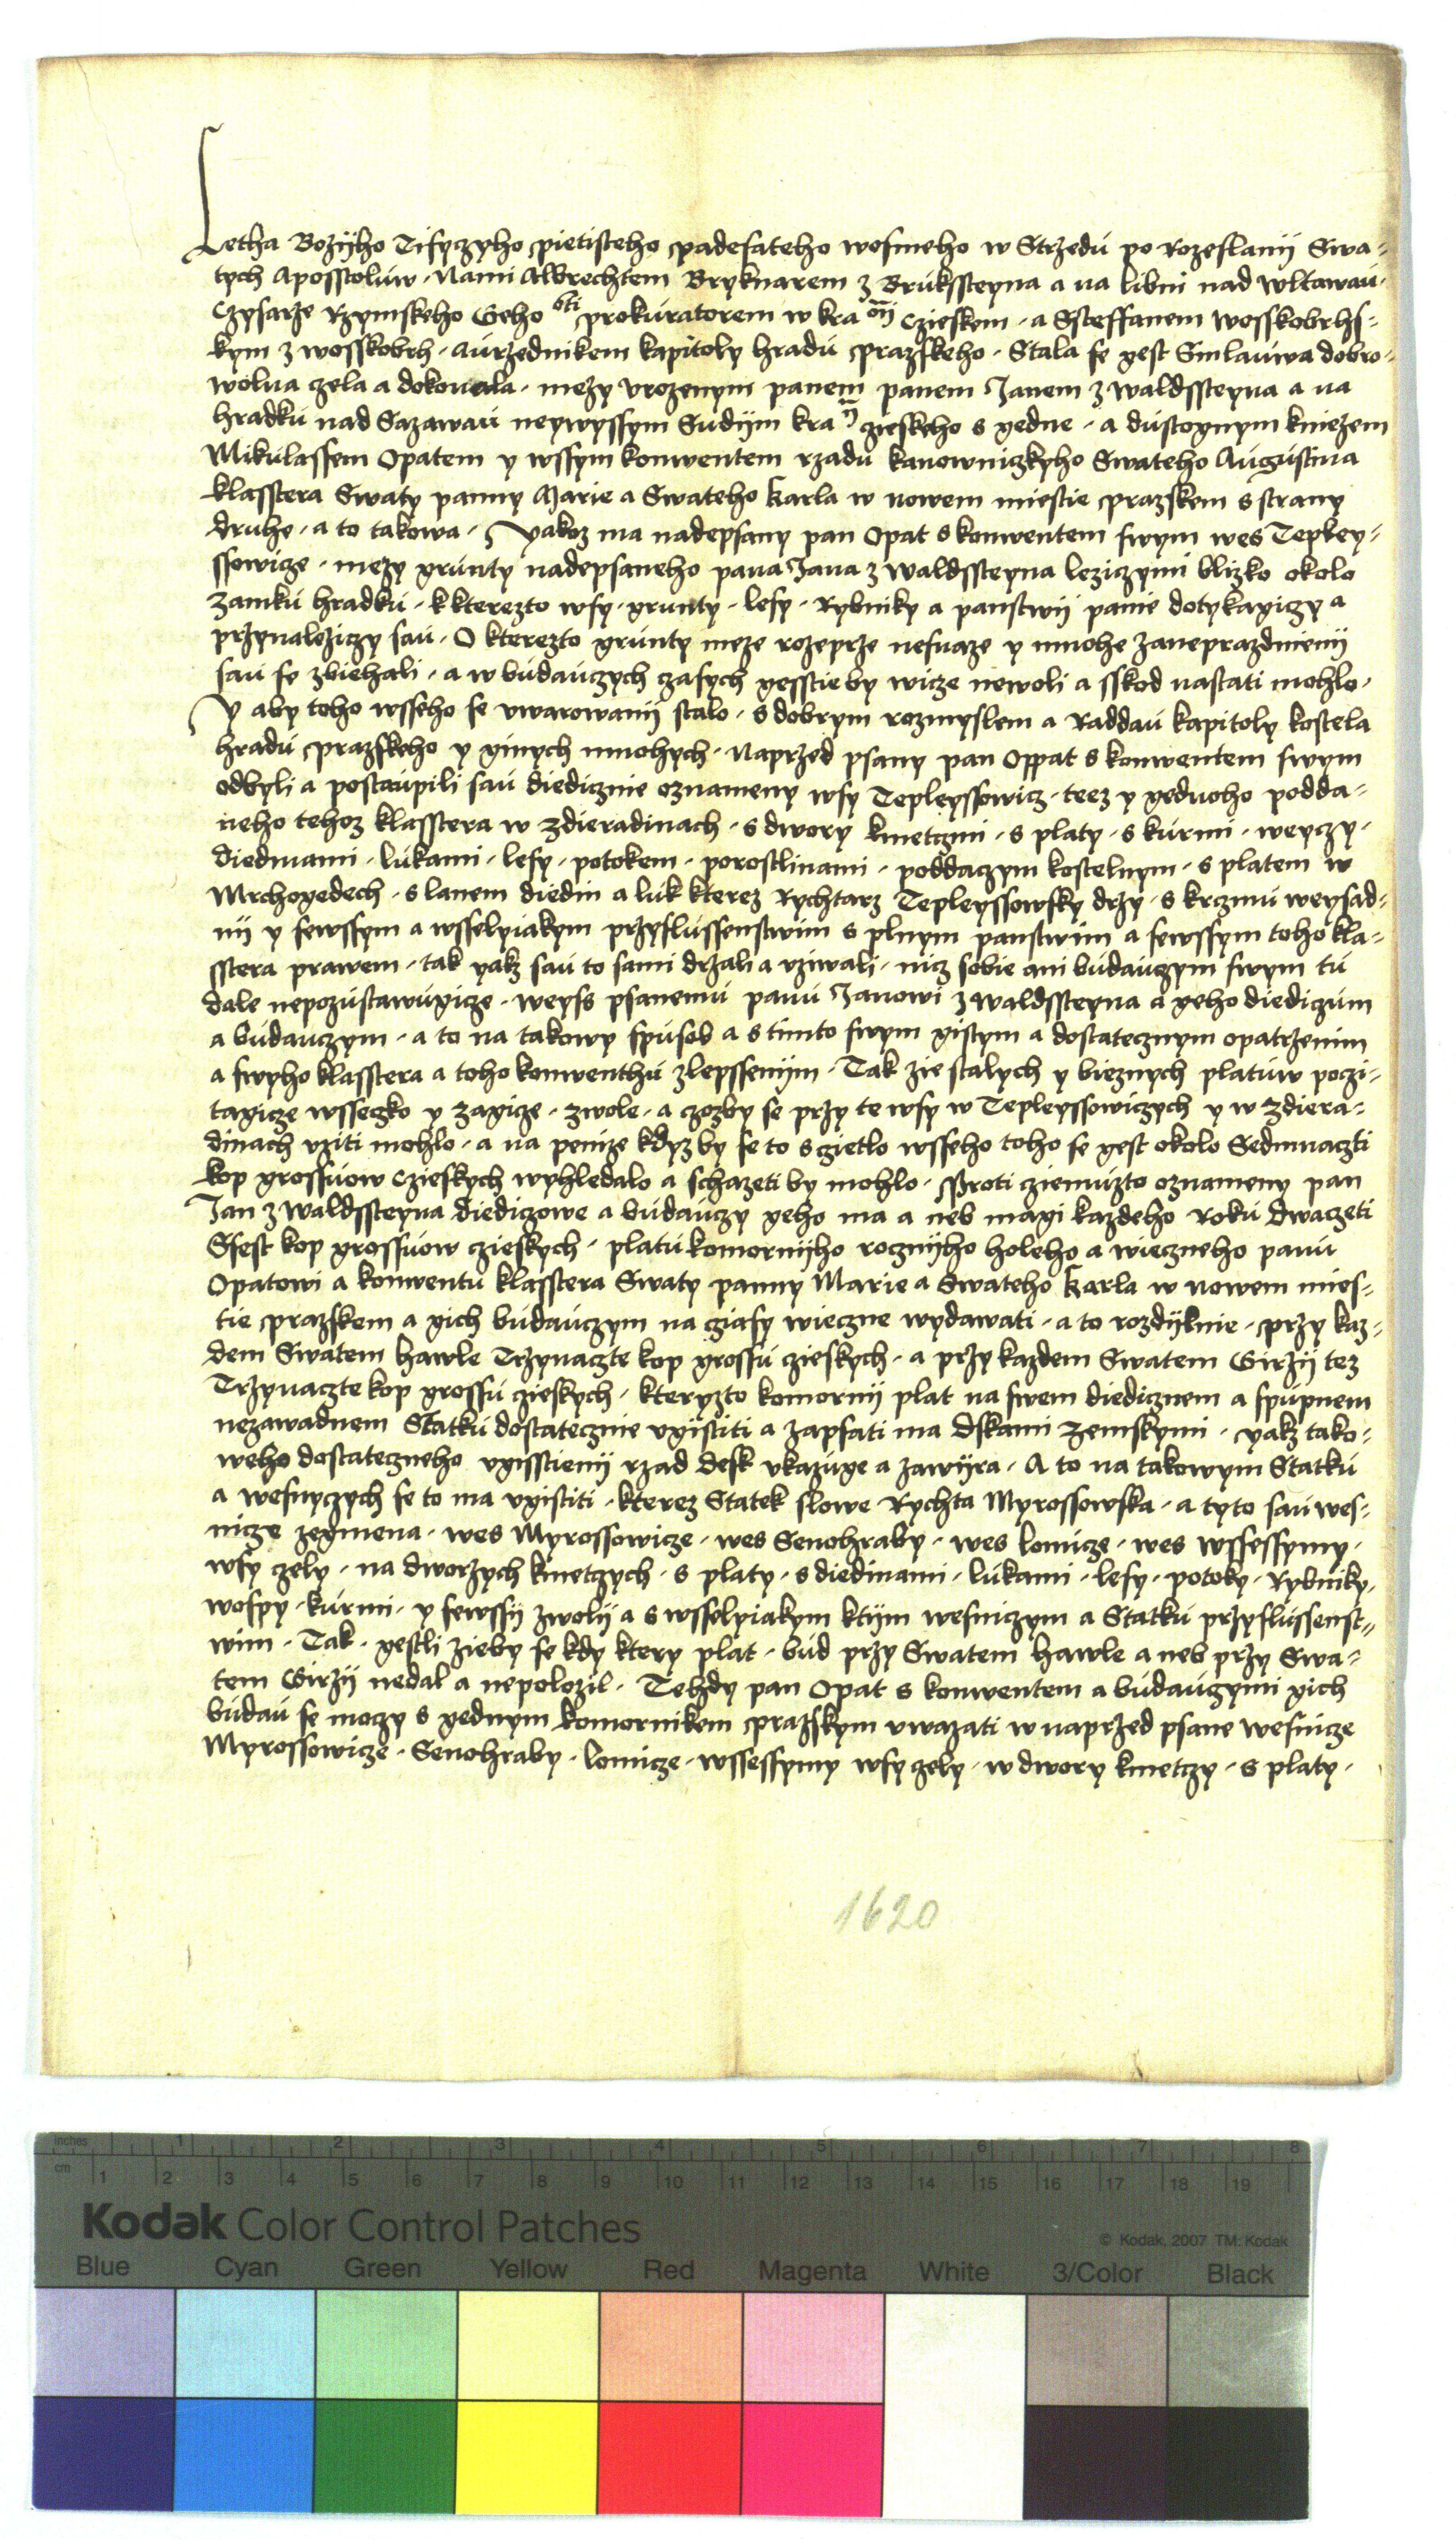 Letha Bozijho Tisyczyho pietisteho padesateho wosmeho w Strzedu po Rozeslanij Swa-
tych Aposstoluw. Nami Albrechtem Bryknarem z Brukssteyna a na Libni nad Wltawau.
Czysarze Rzymskeho Geho Mti prokuratorem w kra oij Czieskem. a Ssteffanem Wosskobrhs-
kym z Wosskobrh. Aurzednikem kapitoly hradu prazskeho. Stala se gest Smlauwa dobro-
wolna czela a dokonala. mezy Urozenym panem panem Janem z Waldssteyna a na
hradku nad Sazawau neywyssym Sudijm kra ij Czieskeho s gedne. a dustognym kniezem
Mikulassem Opatem y wssym konwentem rzadu kanowniczkyho Swateho Augustina
klasstera Swaty panny Marie a Swateho Karla w nowem miestie prazskem s strany
druhe. a to takowa. Yakoz ma nadepsany pan Opat s konwentem swym wes Tepley-
ssowicze. mezy grunty nadepsaneho pana Jana z Waldssteyna leziczymi blizko okolo
zamku hradku. k kterezto wsy. grunty. lesy. Rybniky a panstwij panie dotykagiczy a
przynalezieczy sau. O kterezto grunty meze rozeprze nesnaze y mnohe zaneprazdnienij
sau se zbiehali. a w budauczych czasych gesstie by wicze newoli a sskod nastati mohlo.
Y aby toho wsseho se uwarowanij stalo. s dobrym rozmyslem a Raddau kapitoly kostela
hradu prazskeho y ginych mnohych. Naprzed psany pan Oppat s konwentem swym
odbyli a postaupili sau diediczme oznameny wsy Tepleyssowicz. teez y gednoho podda-
neho tehoz klasstera w Zdieradinach. s dwory kmetczmi. s platy. s kurmi. weyczy.
diedinami. lukami. lesy. potokem. porostlinami. poddaczym kostelnym. s platem w
Mrchogedech. s lanem diedin a luk kterez Rychtarz Tepleyssowsky drzy. s krczmu weysad-
nij y sewssym a wsselyiakym przyslussenstwim s plnym panstwim a sewssym toho kla-
sstera prawem. tak yakz sau to sami drzali a uziwali. nicz sobie ani budauczym swym tu
dale nepozustawugicze. weyss psanemu panu Janowi z Waldssteyna a geho diediczum
a budauczym. a to na takowy spusob a s timto swym gistym a dostatecznym opatrzenim
a swyho klasstera a toho konwenthu zlepssenijm. Tak zie stalych y bieznych platuw poczi-
tagicze wsseczko y zagicze. zwole. a czozby se przy te wsy w Tepleyssowiczych y w Zdiera-
dinach uziti mohlo. a na penize kdyz by se to sczietlo wsseho toho se gest okolo Sedmnaczti
kop grossuow Czieskych wyhledalo a schazeti by mohlo. Proti cziemuzto oznameny pan
Jan z Waldssteyna diediczowe a budauczy geho ma a neb magi kazdeho roku dwaczeti
Ssest kop grossuow czieskych. platu komornijho rocznijho holeho a wieczneho panu
Opatowi a konwentu klasstera Swaty panny Marie a Swateho Karla w nowem mies-
tie prazskem a gich budauczym na cziasy wieczne wydawati. a to rozdijlnie. przy kaz-
dem Swatem Hawle Trzynaczte kop grossu czieskych. a przy kazdem Swatem Girzij tez
Trzynaczte kop grossu czieskych. kteryzto komornij plat na swem diedicznem a spupnem
nezawadnem Statku dostatecznie ugistiti a zapsati ma dskami zemskymi. yakz tako-
weho dostateczneho ugisstienij rzad desk ukazuge a zawijra. A to na takowym Statku
a wesnyczych se to ma ugistiti. kterez Statek slowe Rychta Myrossowska. a tyto sau wes-
nicze zegmena. wes Myrossowicze. wes Senohraby. wes Lomicze. wes Wssessymy.
wsy czely. na dworzych kmetczych. s platy. s diedinami. lukami. lesy. potoky. Rybniky.
wospy. kurmi. y sewssij zwolij a s wsselyiakym ktijm wesniczym a Statku przyslussenst-
wim. Tak. gestli zieby se kdy ktery plat. bud przy Swatem Hawle a neb przy Swa-
tem Girzij nedal a nepolozil. Tehdy pan Opat s konwentem a budauczymi gich
budau se moczy s gednym komornikem prazskym uwazati w naprzed psane wesnicze
Myrossowicze. Senohraby. Lomicze. Wssessymy wsy czely. w dwory kmetczy. s platy.
1620
inches 1 2 3 4 5 6 7 8
cm 1 2 3 4 5 6 7 8 9 10 11 12 13 14 15 16 17 18 19
Kodak Color Control Patches
© Kodak, 2007 TM: Kodak
Blue Cyan Green Yellow Red Magenta White 3/Color Black